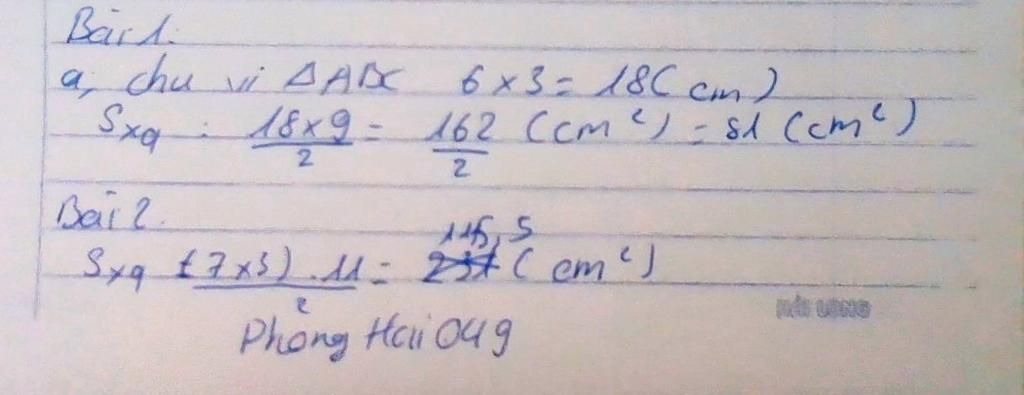 Bài 1.
a, chu vi △ABC 6 x 3 = 18 (cm)
Sxq : 18 x 9 / 2 = 162 / 2 (cm²) = 81 (cm²)
Bài 2.
Sxq (7 x 3) . 11 / 2 = 115,5 (cm²)
HẢI
Phong Hai 049